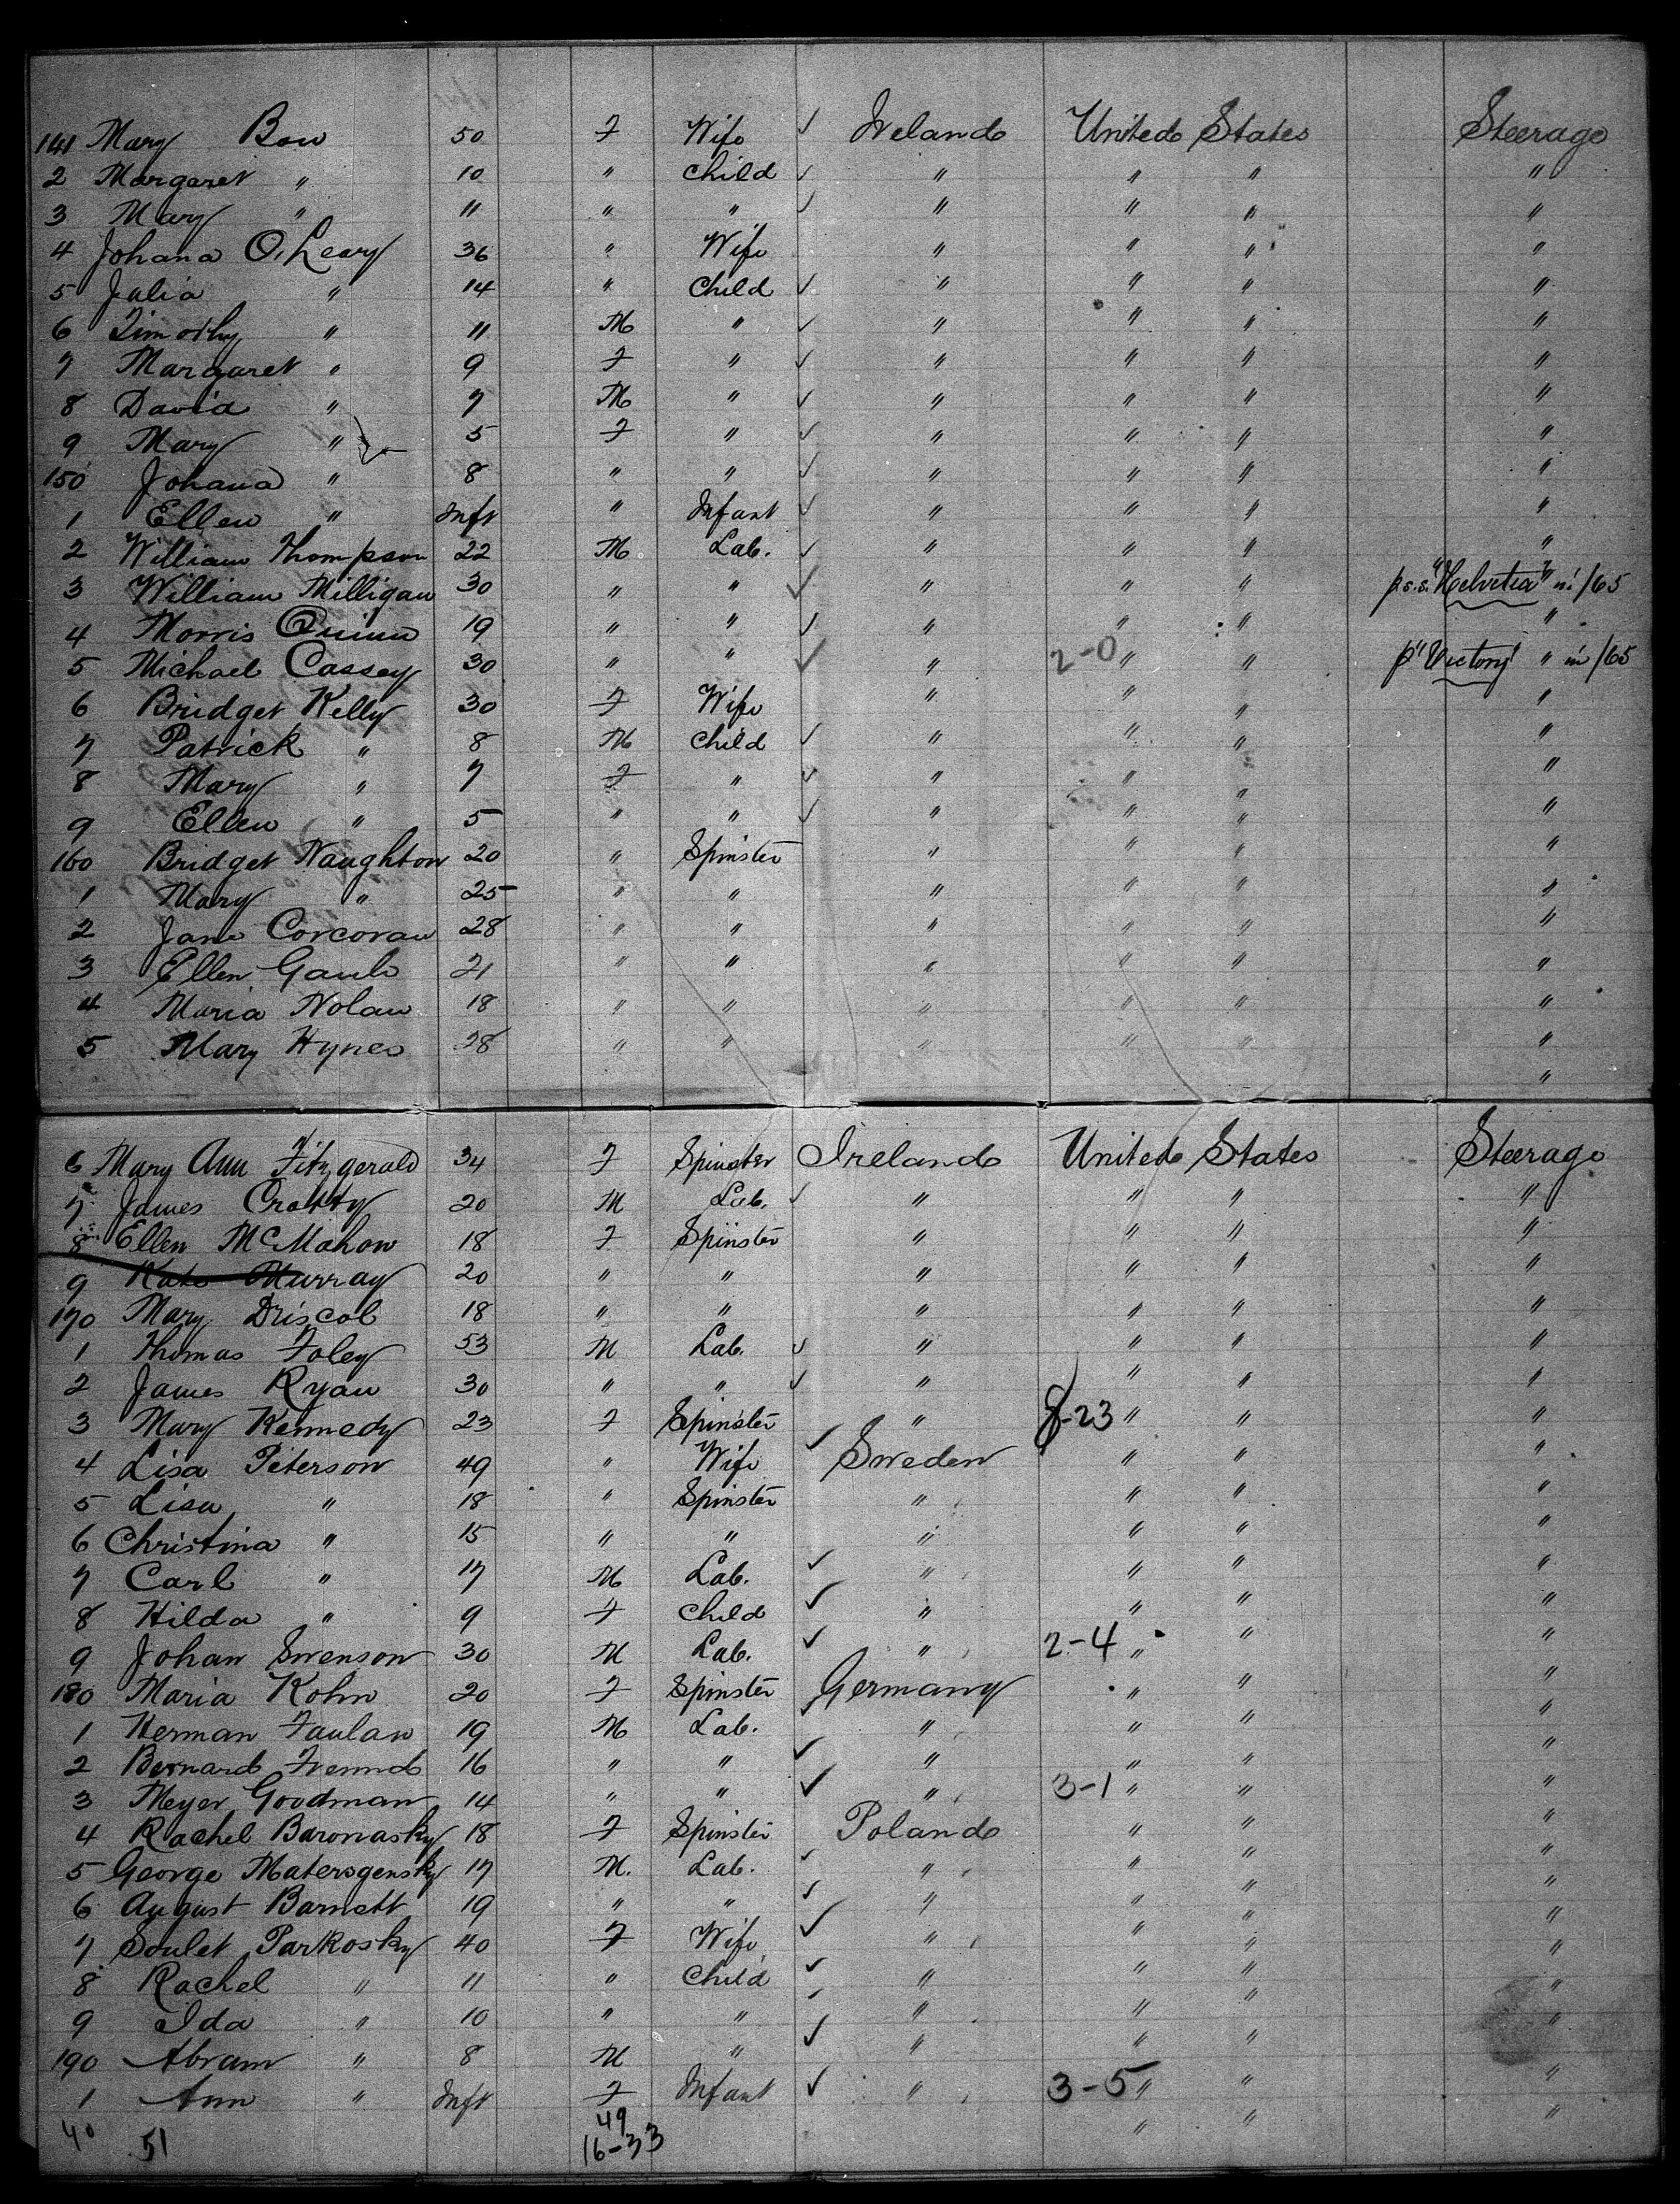 141 Mary Bow 50 F Wife ✓ Ireland United States Steerage
2 Margaret " 10 " Child ✓ " " " "
3 Mary " 11 " " ✓ " " " "
4 Johana O'Leary 36 " Wife " " " "
5 Julia " 14 " Child ✓ " " " "
6 Timothy " 11 M " ✓ " " " "
7 Margaret " 9 F " ✓ " " " "
8 David " 7 M " ✓ " " " "
9 Mary " 5 F " ✓ " " " "
150 Johana " 8 " " ✓ " " " "
1 Ellen " Inft " Infant ✓ " " " "
2 William Thompson 22 M Lab. ✓ " " " "
3 William Milligan 30 " " ✓ " " " p.s.s. "Helvetia" in /65
4 Morris Quinn 19 " " ✓ " " " "
5 Michael Cassey 30 " " ✓ " 2-0 " " p "Victory" " in /65
6 Bridget Kelly 30 F Wife " " " "
7 Patrick " 8 M Child ✓ " " " "
8 Mary " 7 F " ✓ " " " "
9 Ellen " 5 " " ✓ " " " "
160 Bridget Naughton 20 " Spinster " " " "
1 Mary " 25 " " " " " "
2 Jane Corcoran 28 " " " " " "
3 Ellen 21 " " " " " "
4 Maria Nolan 18 " " " " " "
5 Mary Hynes 28 " " " " " "
"
6 Mary Ann Fitzgerald 34 F Spinster Ireland United States Steerage
7 James Crotty 20 M Lab. ✓ " " " "
8 Ellen McMahon 18 F Spinster " " " "
9 Kate Murray 20 " " " " " "
170 Mary Driscol 18 " " " " " "
1 Thomas Foley 53 M Lab. ✓ " " " "
2 James Ryan 30 " " ✓ " " " "
3 Mary Kennedy 23 F Spinster " 8-23 " " "
4 Lisa Peterson 49 " Wife ✓ Sweden " " "
5 Lisa " 18 " Spinster " " " "
6 Christina " 15 " " " " " "
7 Carl " 17 M Lab. ✓ " " " "
8 Hilda " 9 F Child ✓ " " " "
9 Johan Swenson 30 M Lab. ✓ " 2-4 " " "
180 Maria Kohn 20 F Spinster Germany " " "
1 Herman Faulan 19 M Lab. ✓ " " " "
2 Bernard 16 " " ✓ " " " "
3 Meyer Goodman 14 " " ✓ " 3-1 " " "
4 Rachel Baronasky 18 F Spinster Poland " " "
5 George Matersgensky 17 M. Lab. ✓ " " " "
6 August Barnett 19 " " ✓ " " " "
7 Soulet Parkosky 40 F Wife ✓ " " " "
8 Rachel " 11 " Child ✓ " " " "
9 Ida " 10 " " ✓ " " " "
190 Abram " 8 M " ✓ " " " "
1 Ann " Inft F Infant ✓ " 3-5 " " "
40 51 49 " "
16-33